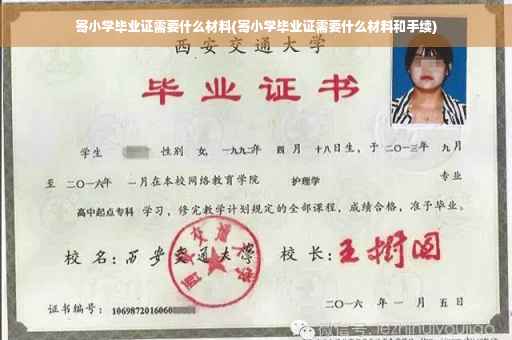 寄小学毕业证需要什么材料(寄小学毕业证需要什么材料和手续)
西安交通大学
毕业证书
学生 性别 女, 一九九二年 四月 十八日生, 于二〇一三年 九月
至 二〇一六年 一月在本校网络教育学院 护理学 专业
高中起点专科 学习, 修完教学计划规定的全部课程, 成绩合格, 准予毕业。
校名: 西安交通大学 校长: 王树国
西安交通大学
证书编号: 1069872016060
二〇一六年 一月 五日
微信号: jezhihuiyoujiao